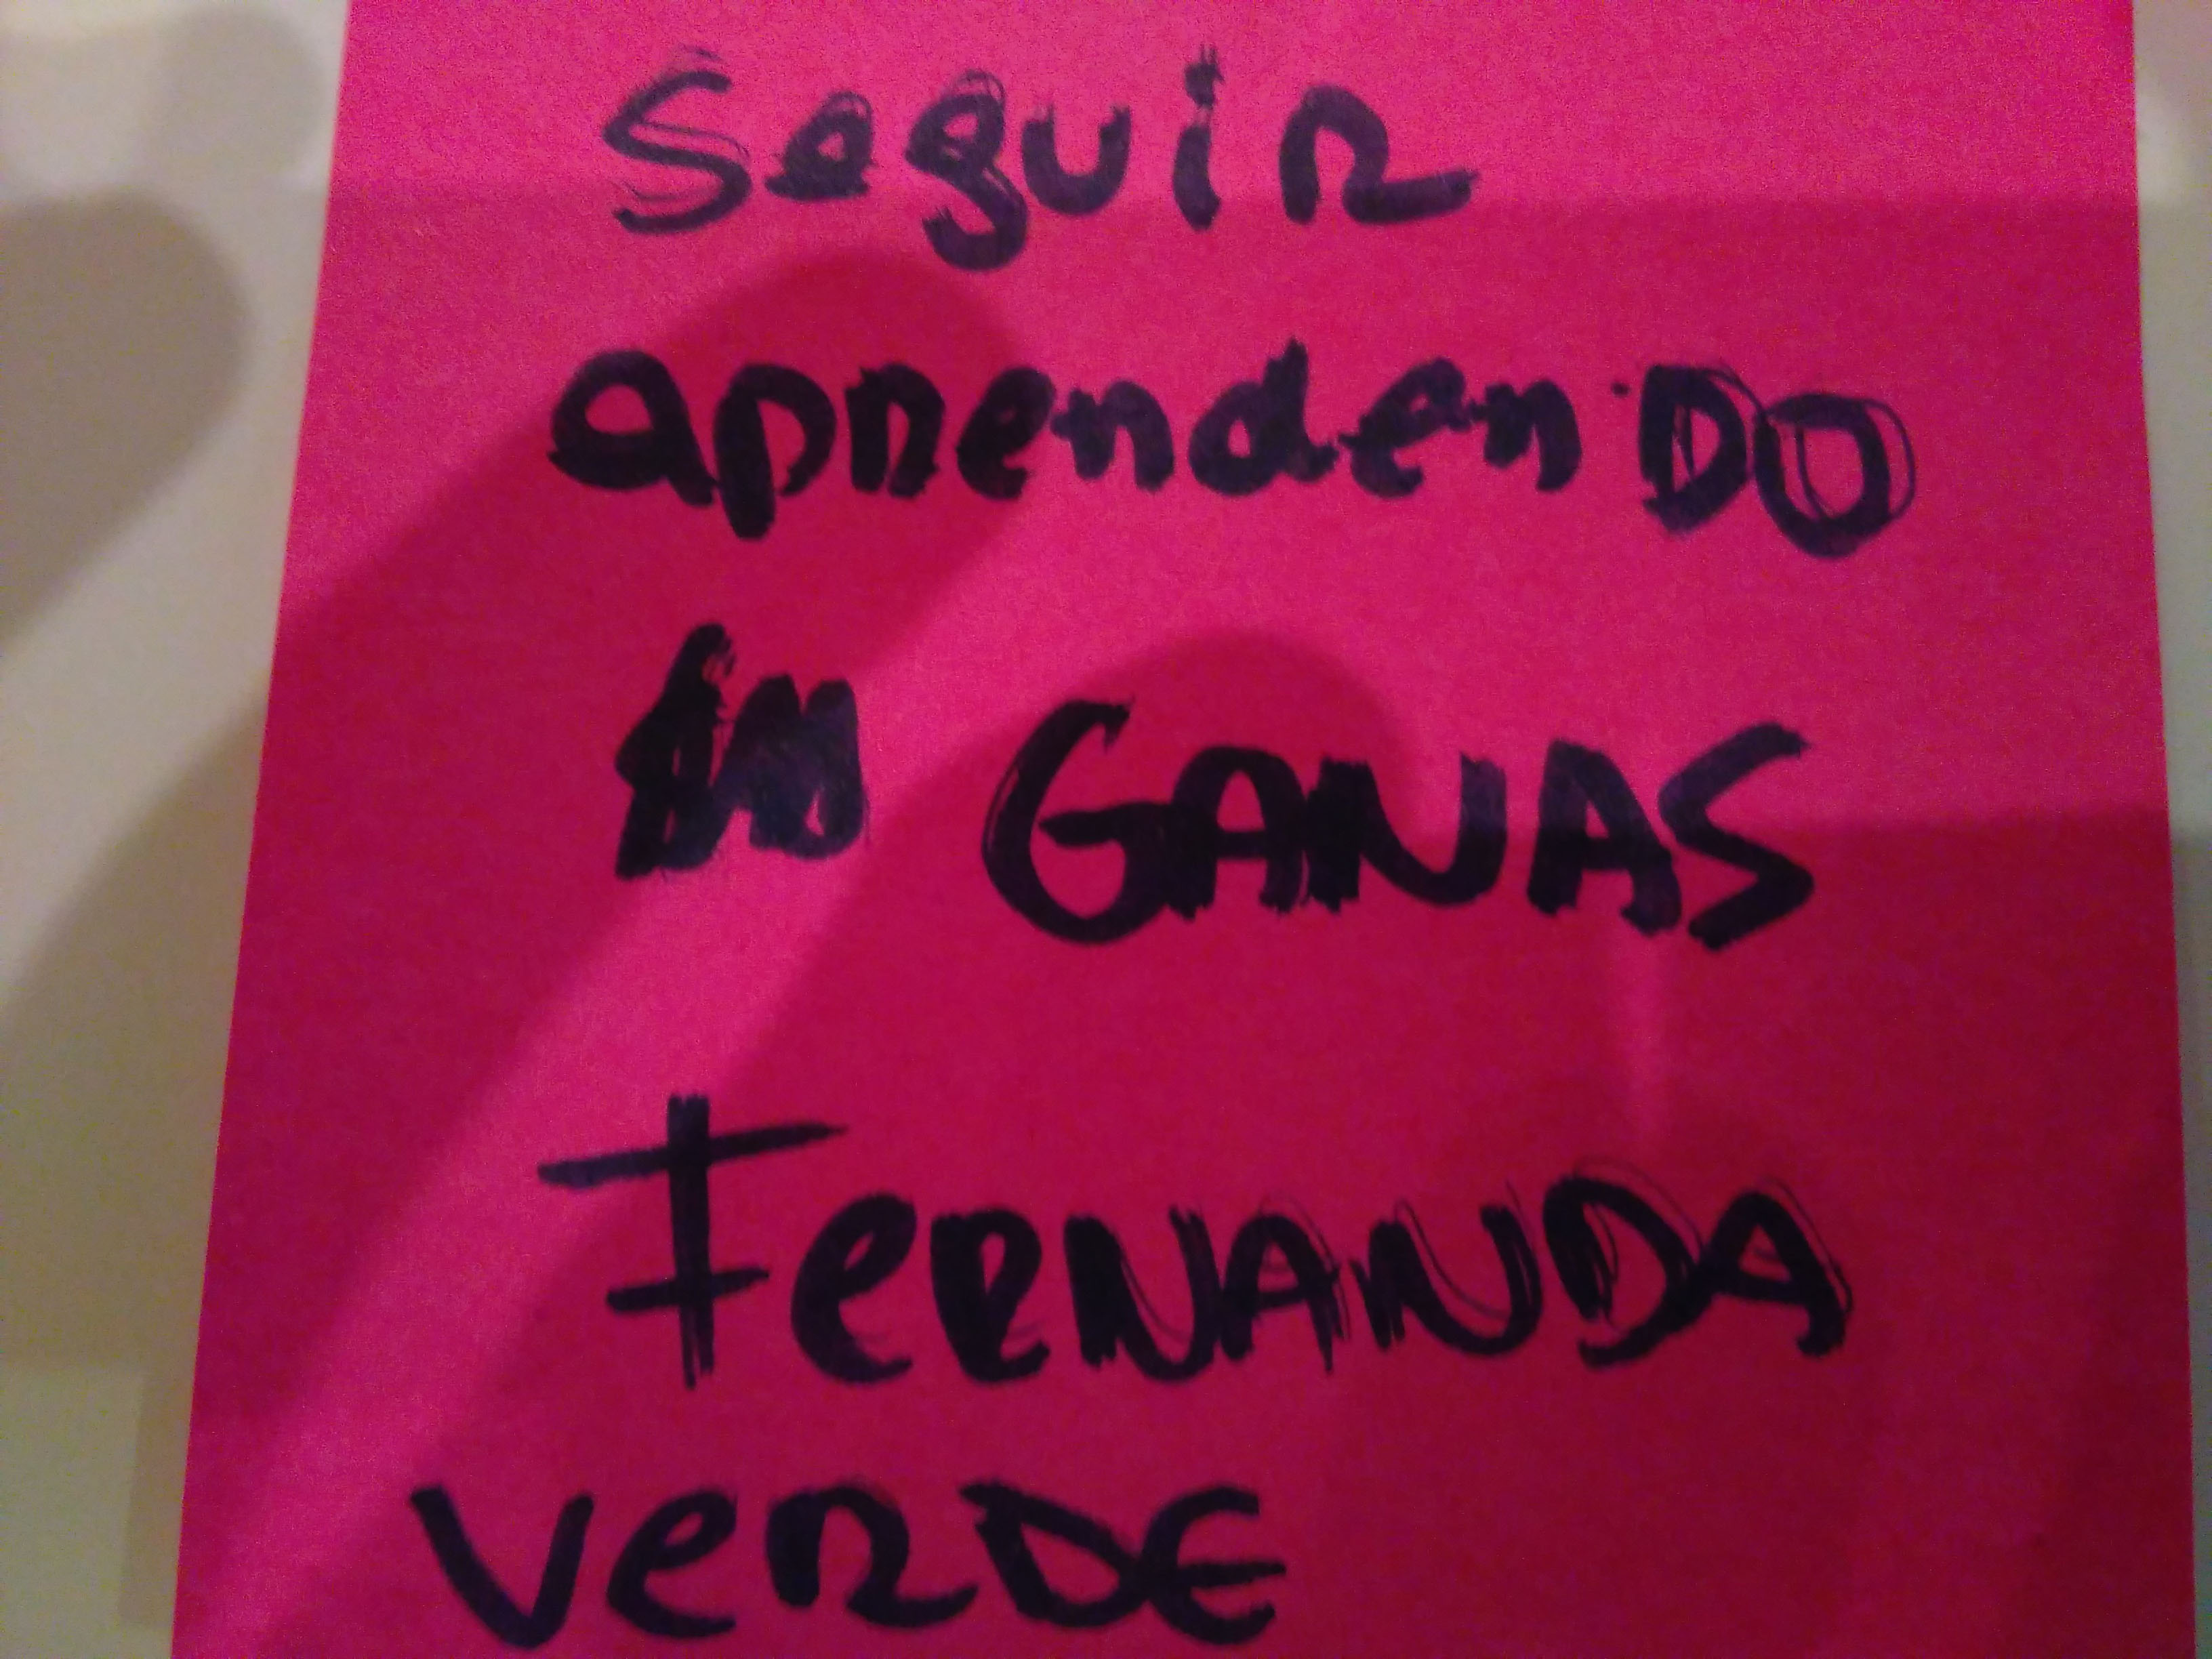 Seguir
aprendendo
GANAS
FERNANDA
VERDE